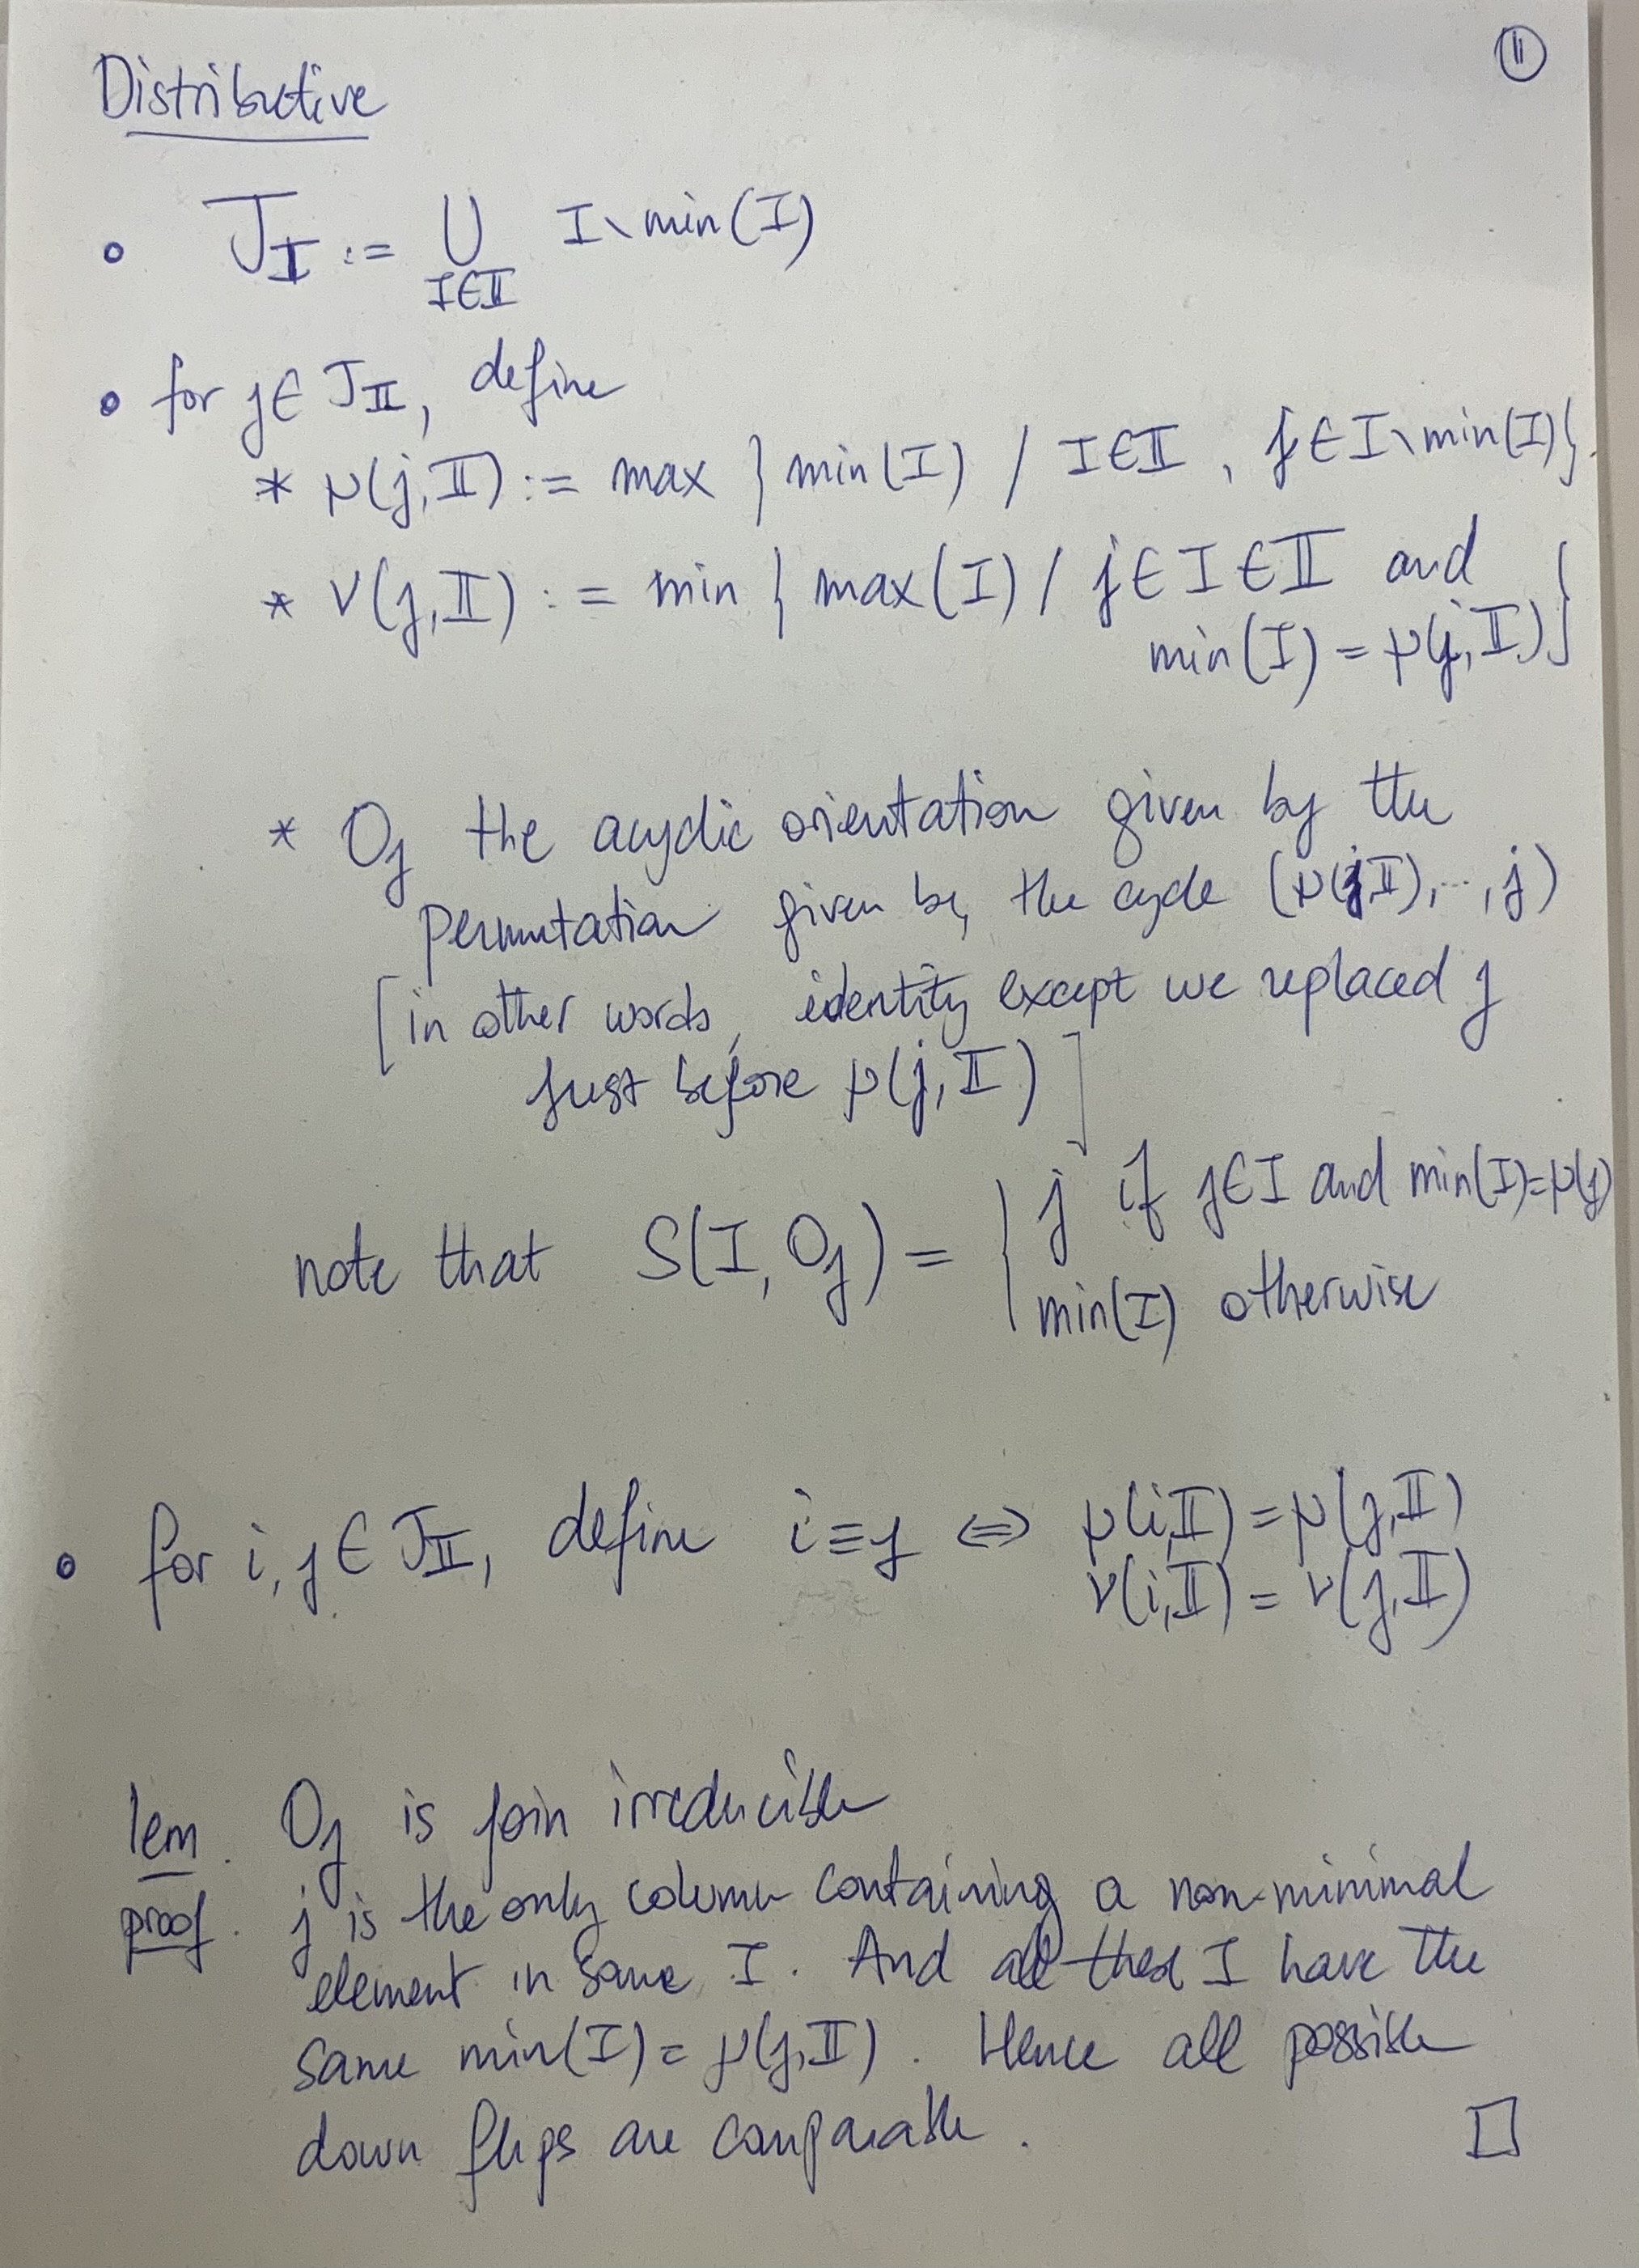 ⑪
Distributive
∘ J_𝕀 := ⋃_{I∈𝕀} I∖min(I)
∘ for j ∈ J_𝕀, define
* μ(j,𝕀) := max { min(I) / I∈𝕀, j∈I∖min(I)}.
* ν(j,𝕀) := min { max(I) / j∈I∈𝕀 and
min(I) = μ(j,𝕀)}
* O_j the acyclic orientation given by the
permutation given by the cycle (μ(j,𝕀),...,j)
[in other words, identity except we replaced j
just before μ(j,𝕀)]
note that S(I,O_j) = { j if j∈I and min(I)=μ(j)
min(I) otherwise
∘ for i,j ∈ J_𝕀, define i≡j ⇔ μ(i,𝕀) = μ(j,𝕀)
ν(i,𝕀) = ν(j,𝕀)
lem. O_j is join irreducible
proof. j is the only column containing a non-minimal
element in some I. And all these I have the
same min(I) = μ(j,𝕀). Hence all possible
down flips are comparable. □